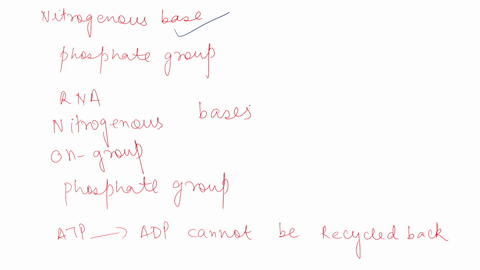 Nitrogenous base
phosphate group
RNA
Nitrogenous bases
OH-group
phosphate group
ATP → ADP cannot be Recycled back